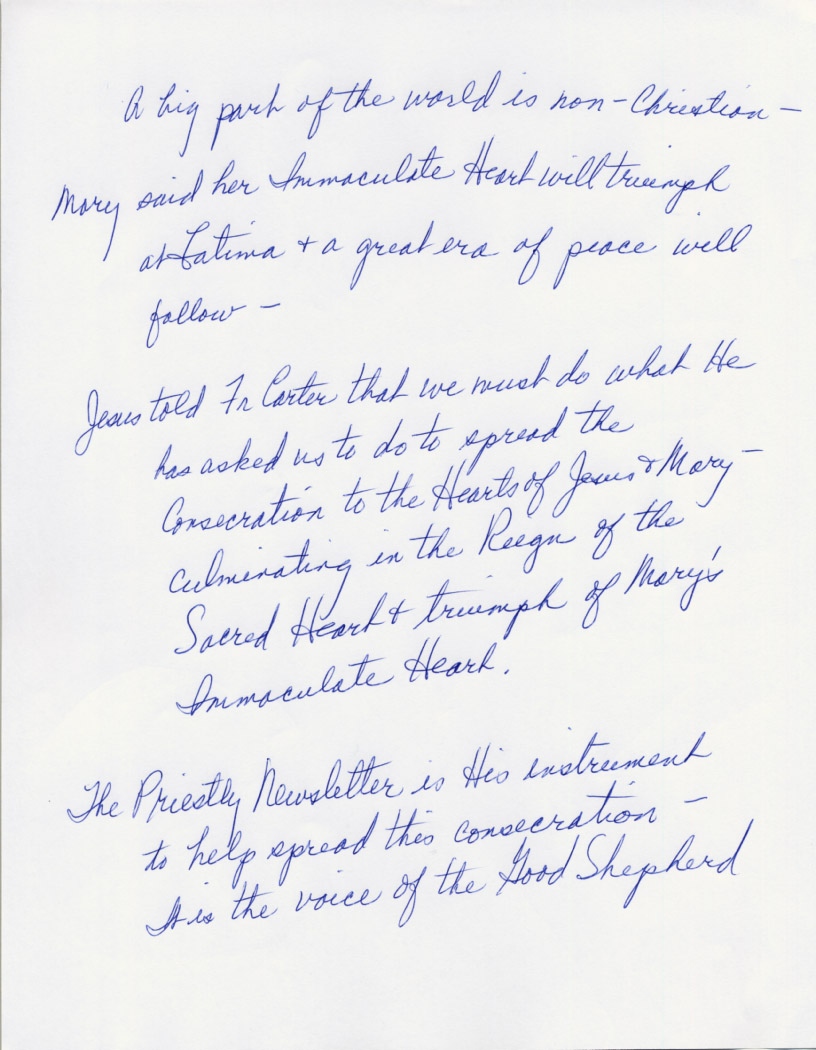 A big part of the world is non-Christian -
Mary said her Immaculate Heart will triumph
at Fatima + a great era of peace will
follow -
Jesus told Fr Carter that we must do what He
has asked us to do to spread the
Consecration to the Hearts of Jesus & Mary -
culminating in the Reign of the
Sacred Heart + triumph of Mary's
Immaculate Heart.
The Priestly Newsletter is His instrument
to help spread this consecration -
It is the voice of the Good Shepherd